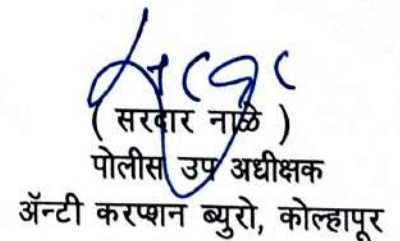 ( सरदार नाळे )
पोलीस उप अधीक्षक
ॲन्टी करप्शन ब्युरो, कोल्हापूर